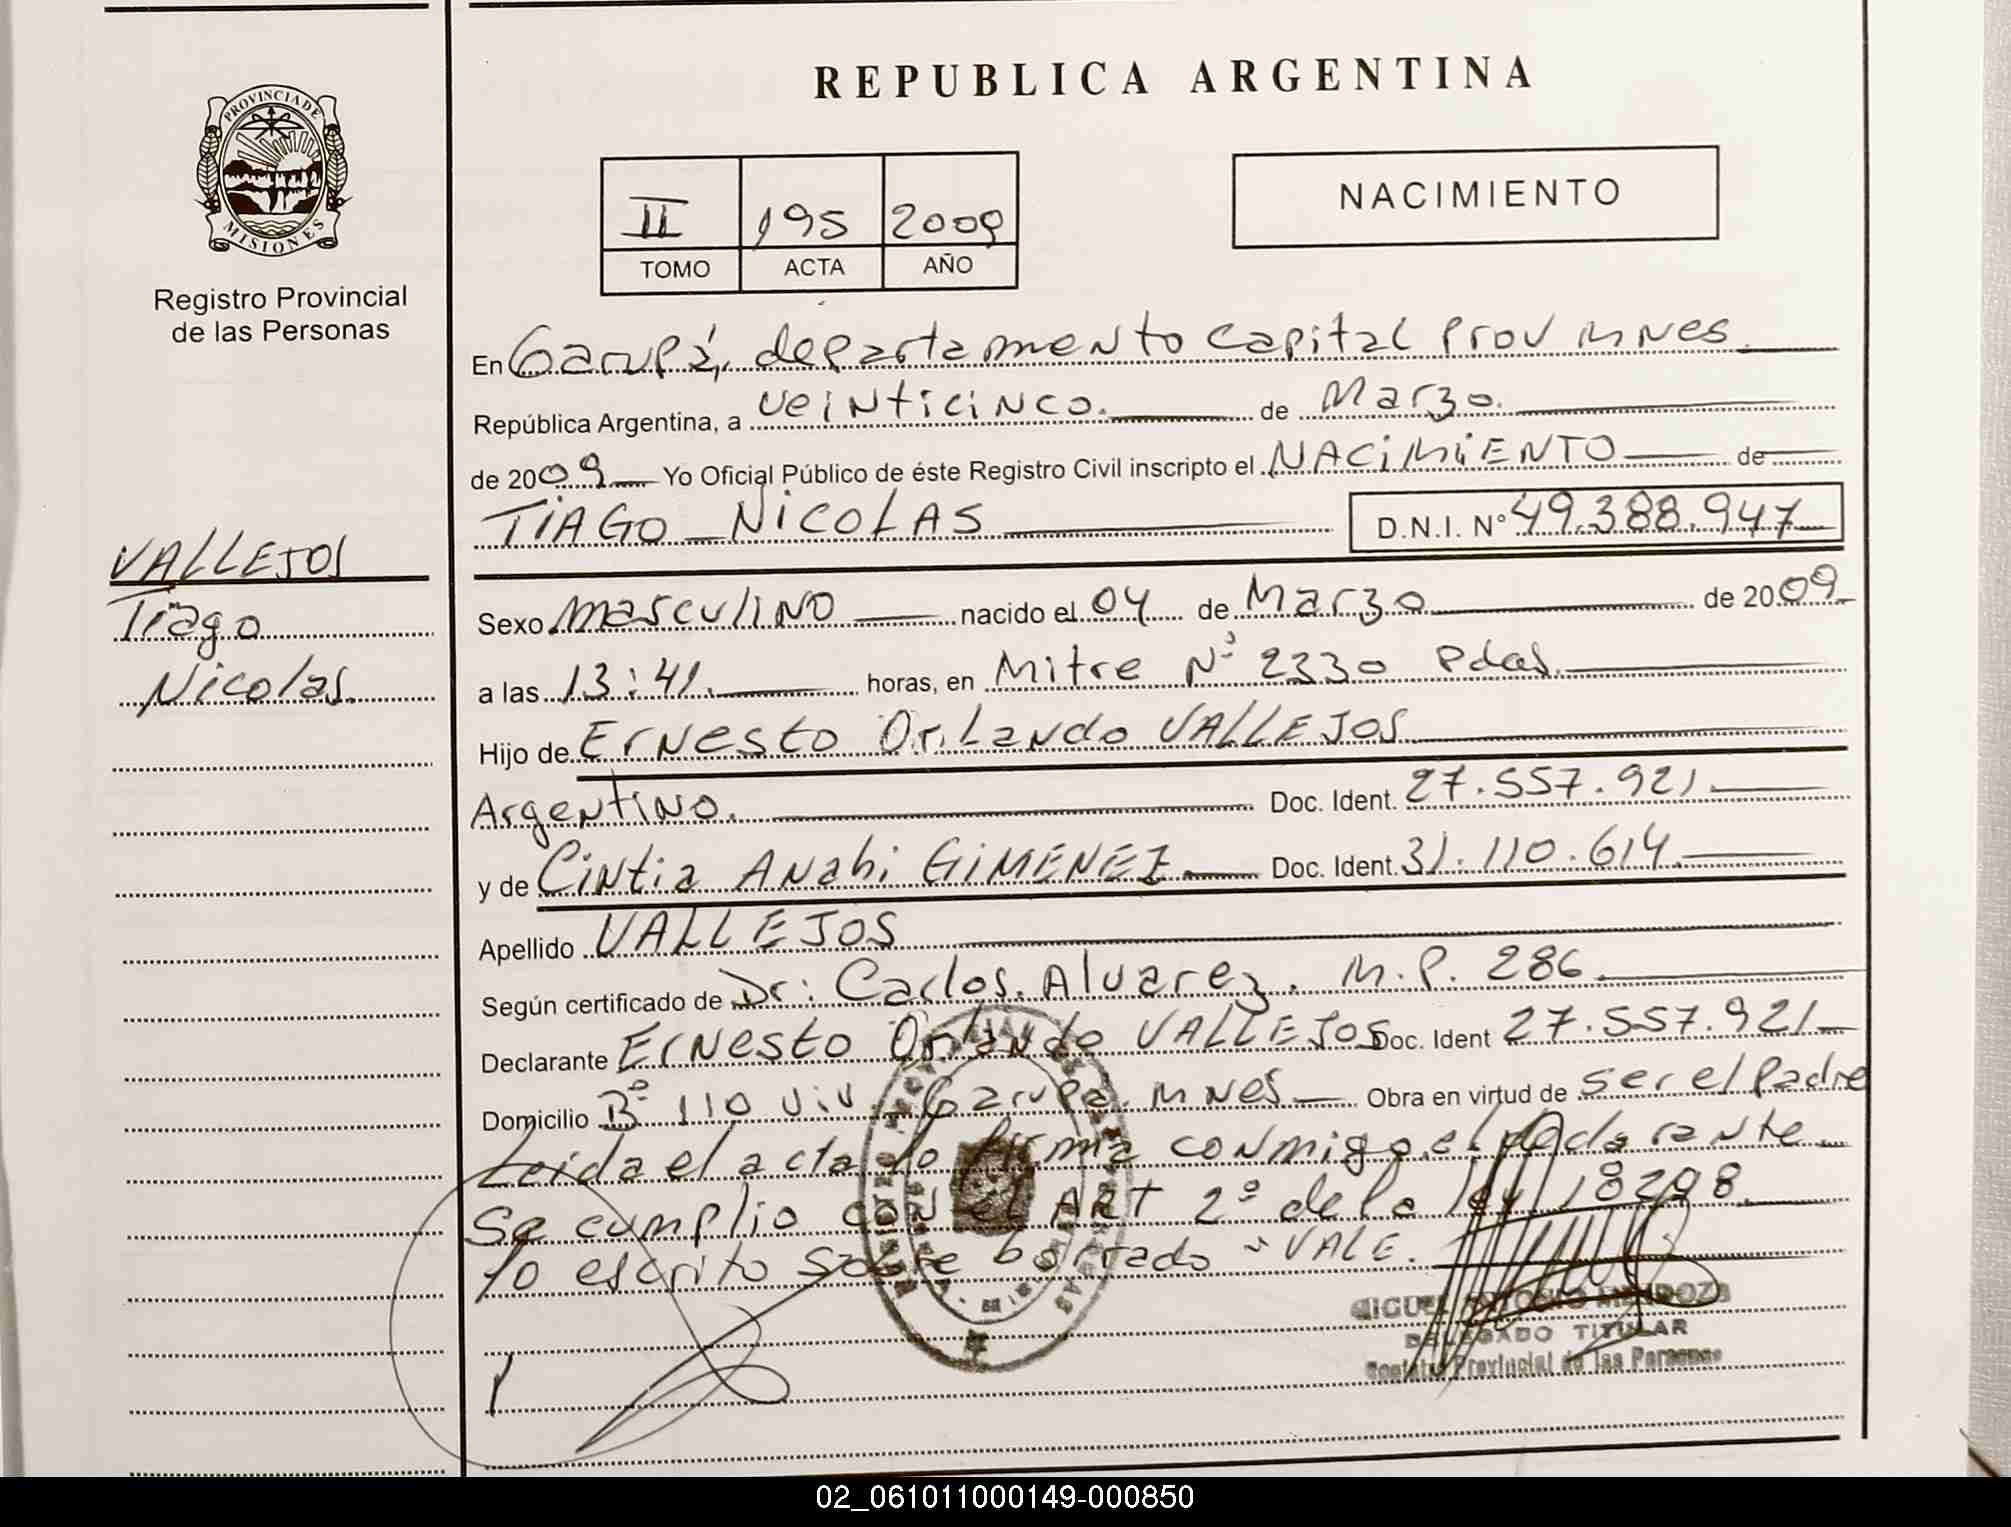 REPUBLICA ARGENTINA
PROVINCIA DE
MISIONES
Registro Provincial
de las Personas
II 195 2009
TOMO ACTA AÑO
NACIMIENTO
VALLEJOS
Tiago
Nicolas.
En Garupá, departamento Capital Prov Mnes.
República Argentina, a veinticinco. de Marzo.
de 2009 Yo Oficial Público de éste Registro Civil inscripto el NACIMIENTO de
TIAGO NICOLAS D.N.I. Nº 49.388.947
Sexo Masculino nacido el 04 de Marzo de 2009
a las 13:41. horas, en Mitre Nº 2330 Pdas.
Hijo de Ernesto Orlando VALLEJOS
Argentino. Doc. Ident. 27.557.921
y de Cintia Anahi GIMENEZ Doc. Ident. 31.110.614
Apellido VALLEJOS
Según certificado de Dr: Carlos Alvarez. M.P. 286
Declarante Ernesto Orlando VALLEJOS Doc. Ident 27.557.921
Domicilio Bº 110 viv. Garupa. Mnes Obra en virtud de ser el Padre
Leida el acta lo firma conmigo el declarante
Se cumplio con el ART 2º de la ley 18298
lo escrito sobre borrado "VALE.
MIGUEL ANTONIO MENDOZA
DELEGADO TITULAR
Provincial de las Personas
02_061011000149-000850